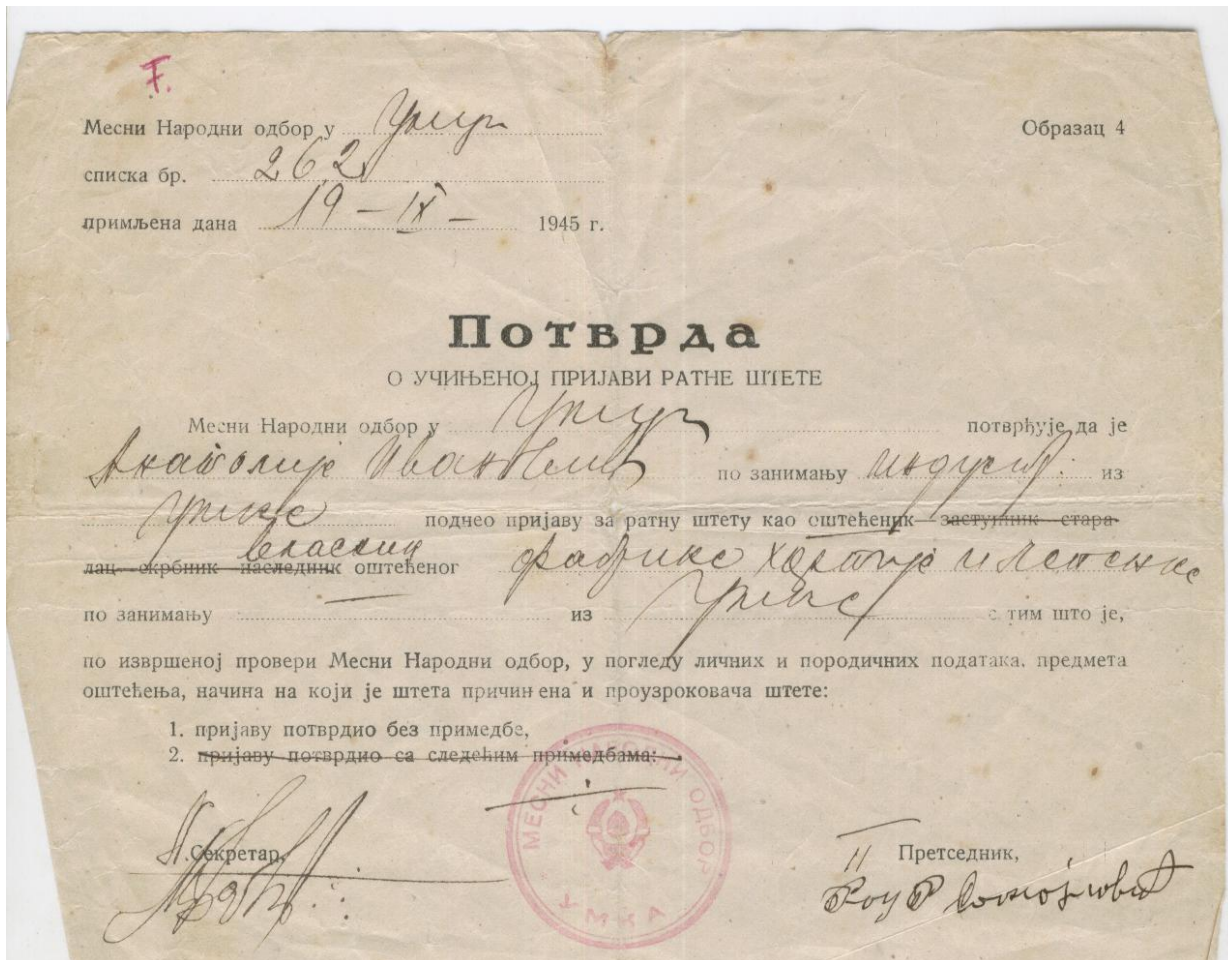 F.
Месни Народни одбор у Умци
Образац 4
списка бр. 262
примљена дана 19 – IX – 1945 г.
Потврда
О УЧИЊЕНОЈ ПРИЈАВИ РАТНЕ ШТЕТЕ
Месни Народни одбор у Умци потврђује да је
Анатолије Ивановић по занимању индустр. из
Умке поднео пријаву за ратну штету као оштећеник заступник стара-
власник
лац скрбник наследник оштећеног фабрике хартије и лепенке
по занимању — из Умке с тим што је,
по извршеној провери Месни Народни одбор, у погледу личних и породичних података, предмета
оштећења, начина на који је штета причињена и проузроковача штете:
1. пријаву потврдио без примедбе,
2. пријаву потврдио са следећим примедбама:
МЕСНИ НАРОДНИ ОДБОР
УМКА
Секретар,
II Претседник,